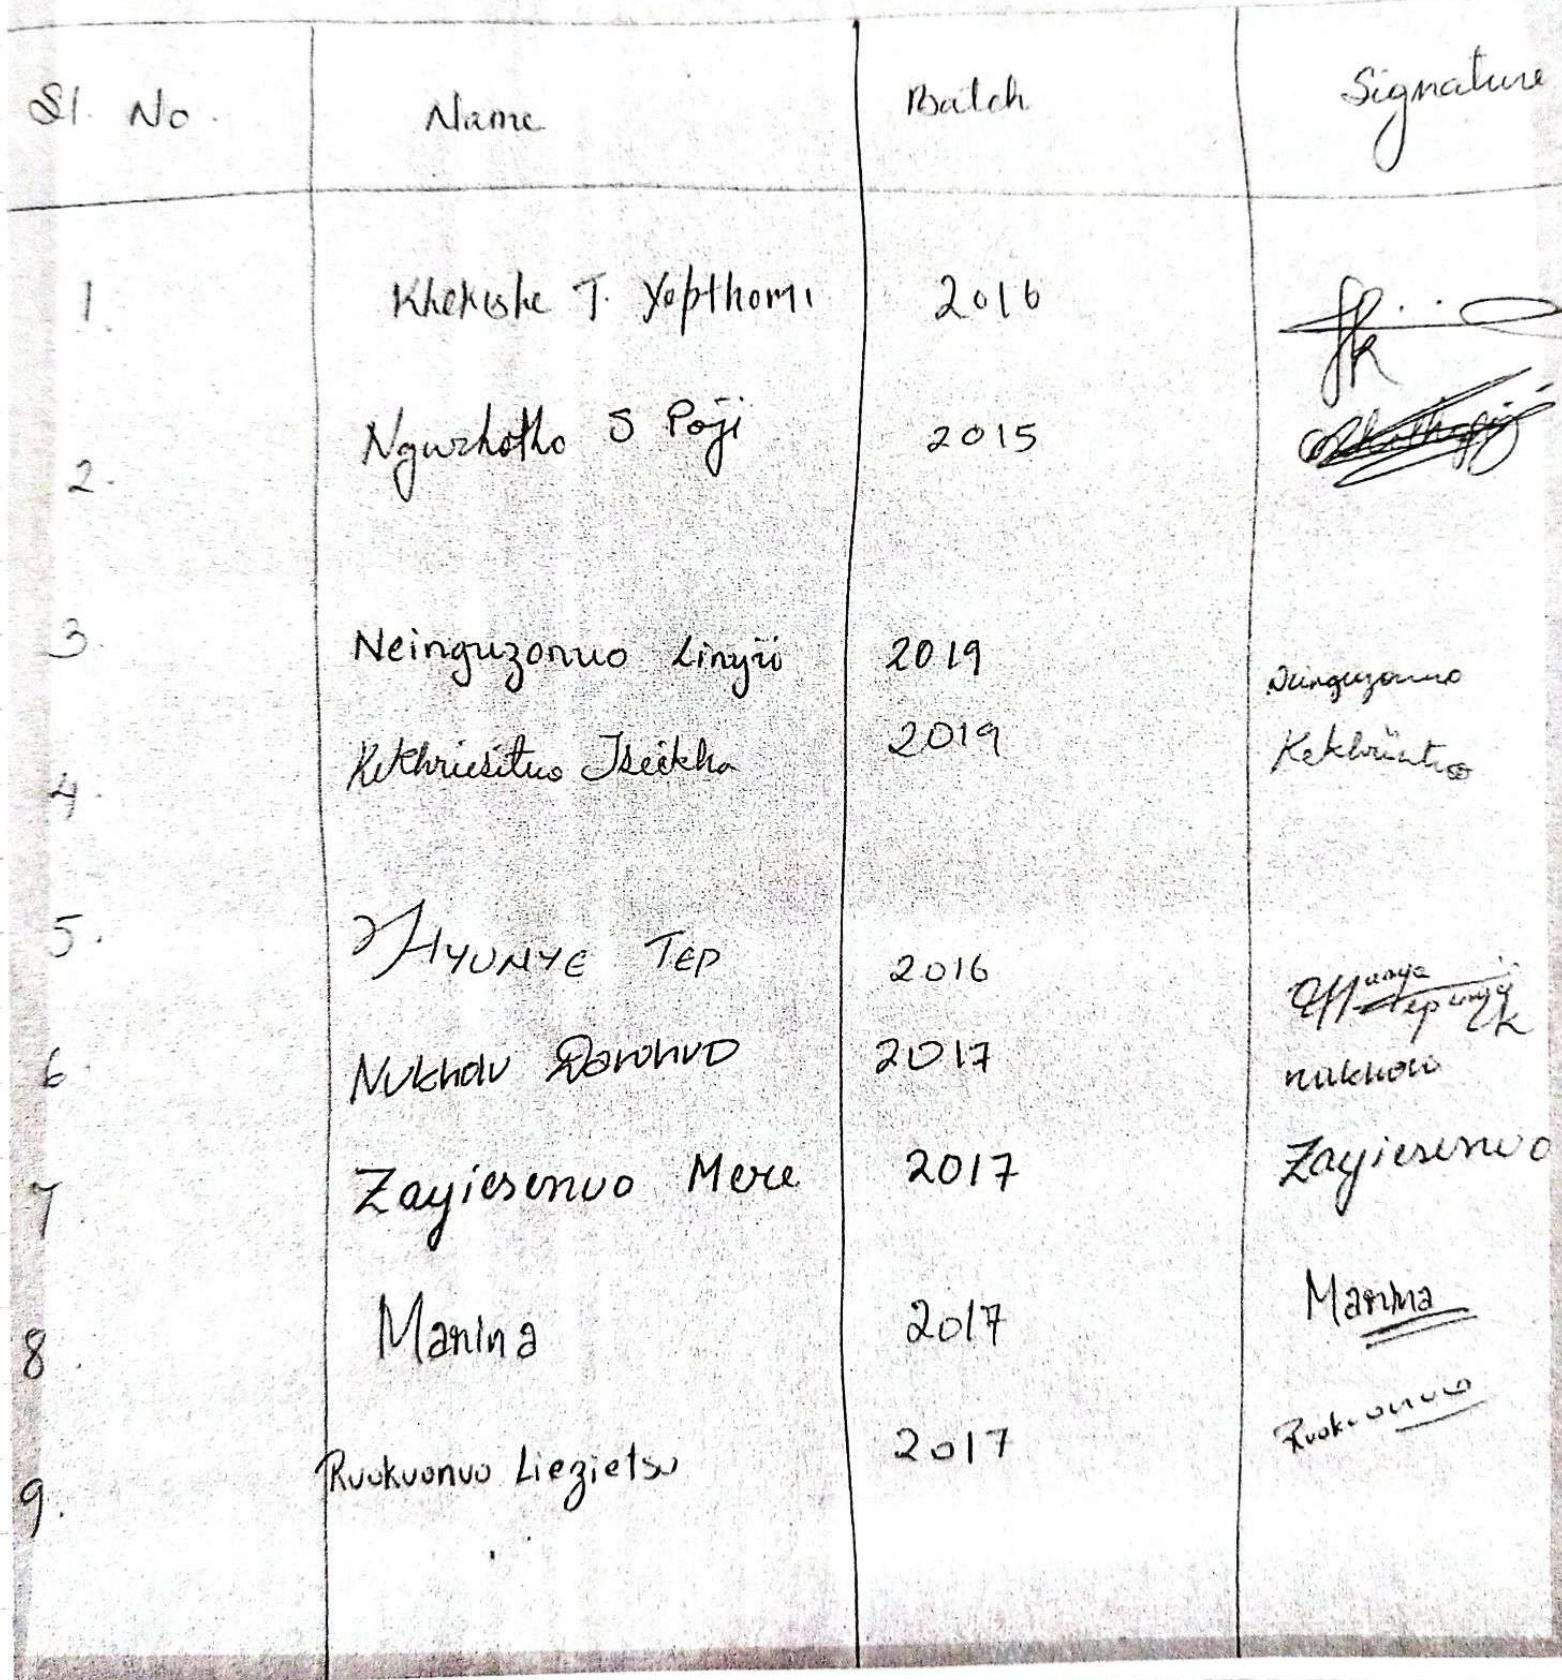 Sl. No. Name Batch Signature
1. Khekishe T. Yepthomi 2016
2. Ngurzhotho S Poji 2015
3. Neinguzonuo Linyü 2019 Neinguzonuo
4. Kekhriesituo Tseikha 2019
5. HYUNYE TEP 2016
6. Nukholu 2017 Nukholu
7 Zayiesenuo Mere 2017 Zayiesenuo
8. Marina 2017 Marina
9. Ruokuonuo Liezietsu 2017 Ruokuonuo